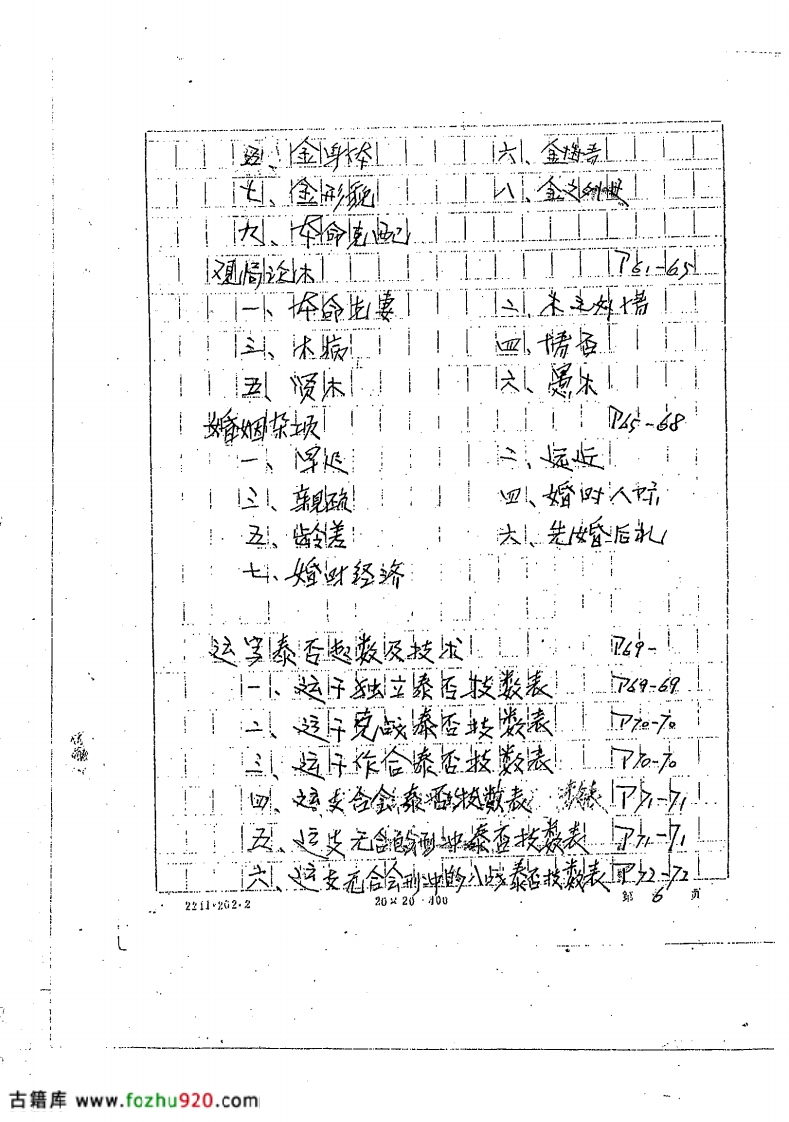 五、金身体 六、金情
七、金形貌 八、金之
九、本命克配
观局论木 P61-65
一、本命克妻 二、木之外情
三、木病 四、情否
五、贤木 六、愚木
婚姻杂项 P65-68
一、早迟 二、远近
三、亲疏 四、婚时人
五、龄差 六、先婚后礼
七、婚时经济
运字泰否起数及技术 P69-
一、运干独立泰否技数表 P69-69
二、运干克战泰否技数表 P70-70
三、运干作合泰否技数表 P70-70
四、运支合会泰否技数表 P71-71
五、运支无合的刑冲泰否技数表 P71-71
六、运支无合会刑冲的八战泰否技数表 P72-72
2211·202·2 20×20=400 第 6 页
古籍库 www.fozhu920.com